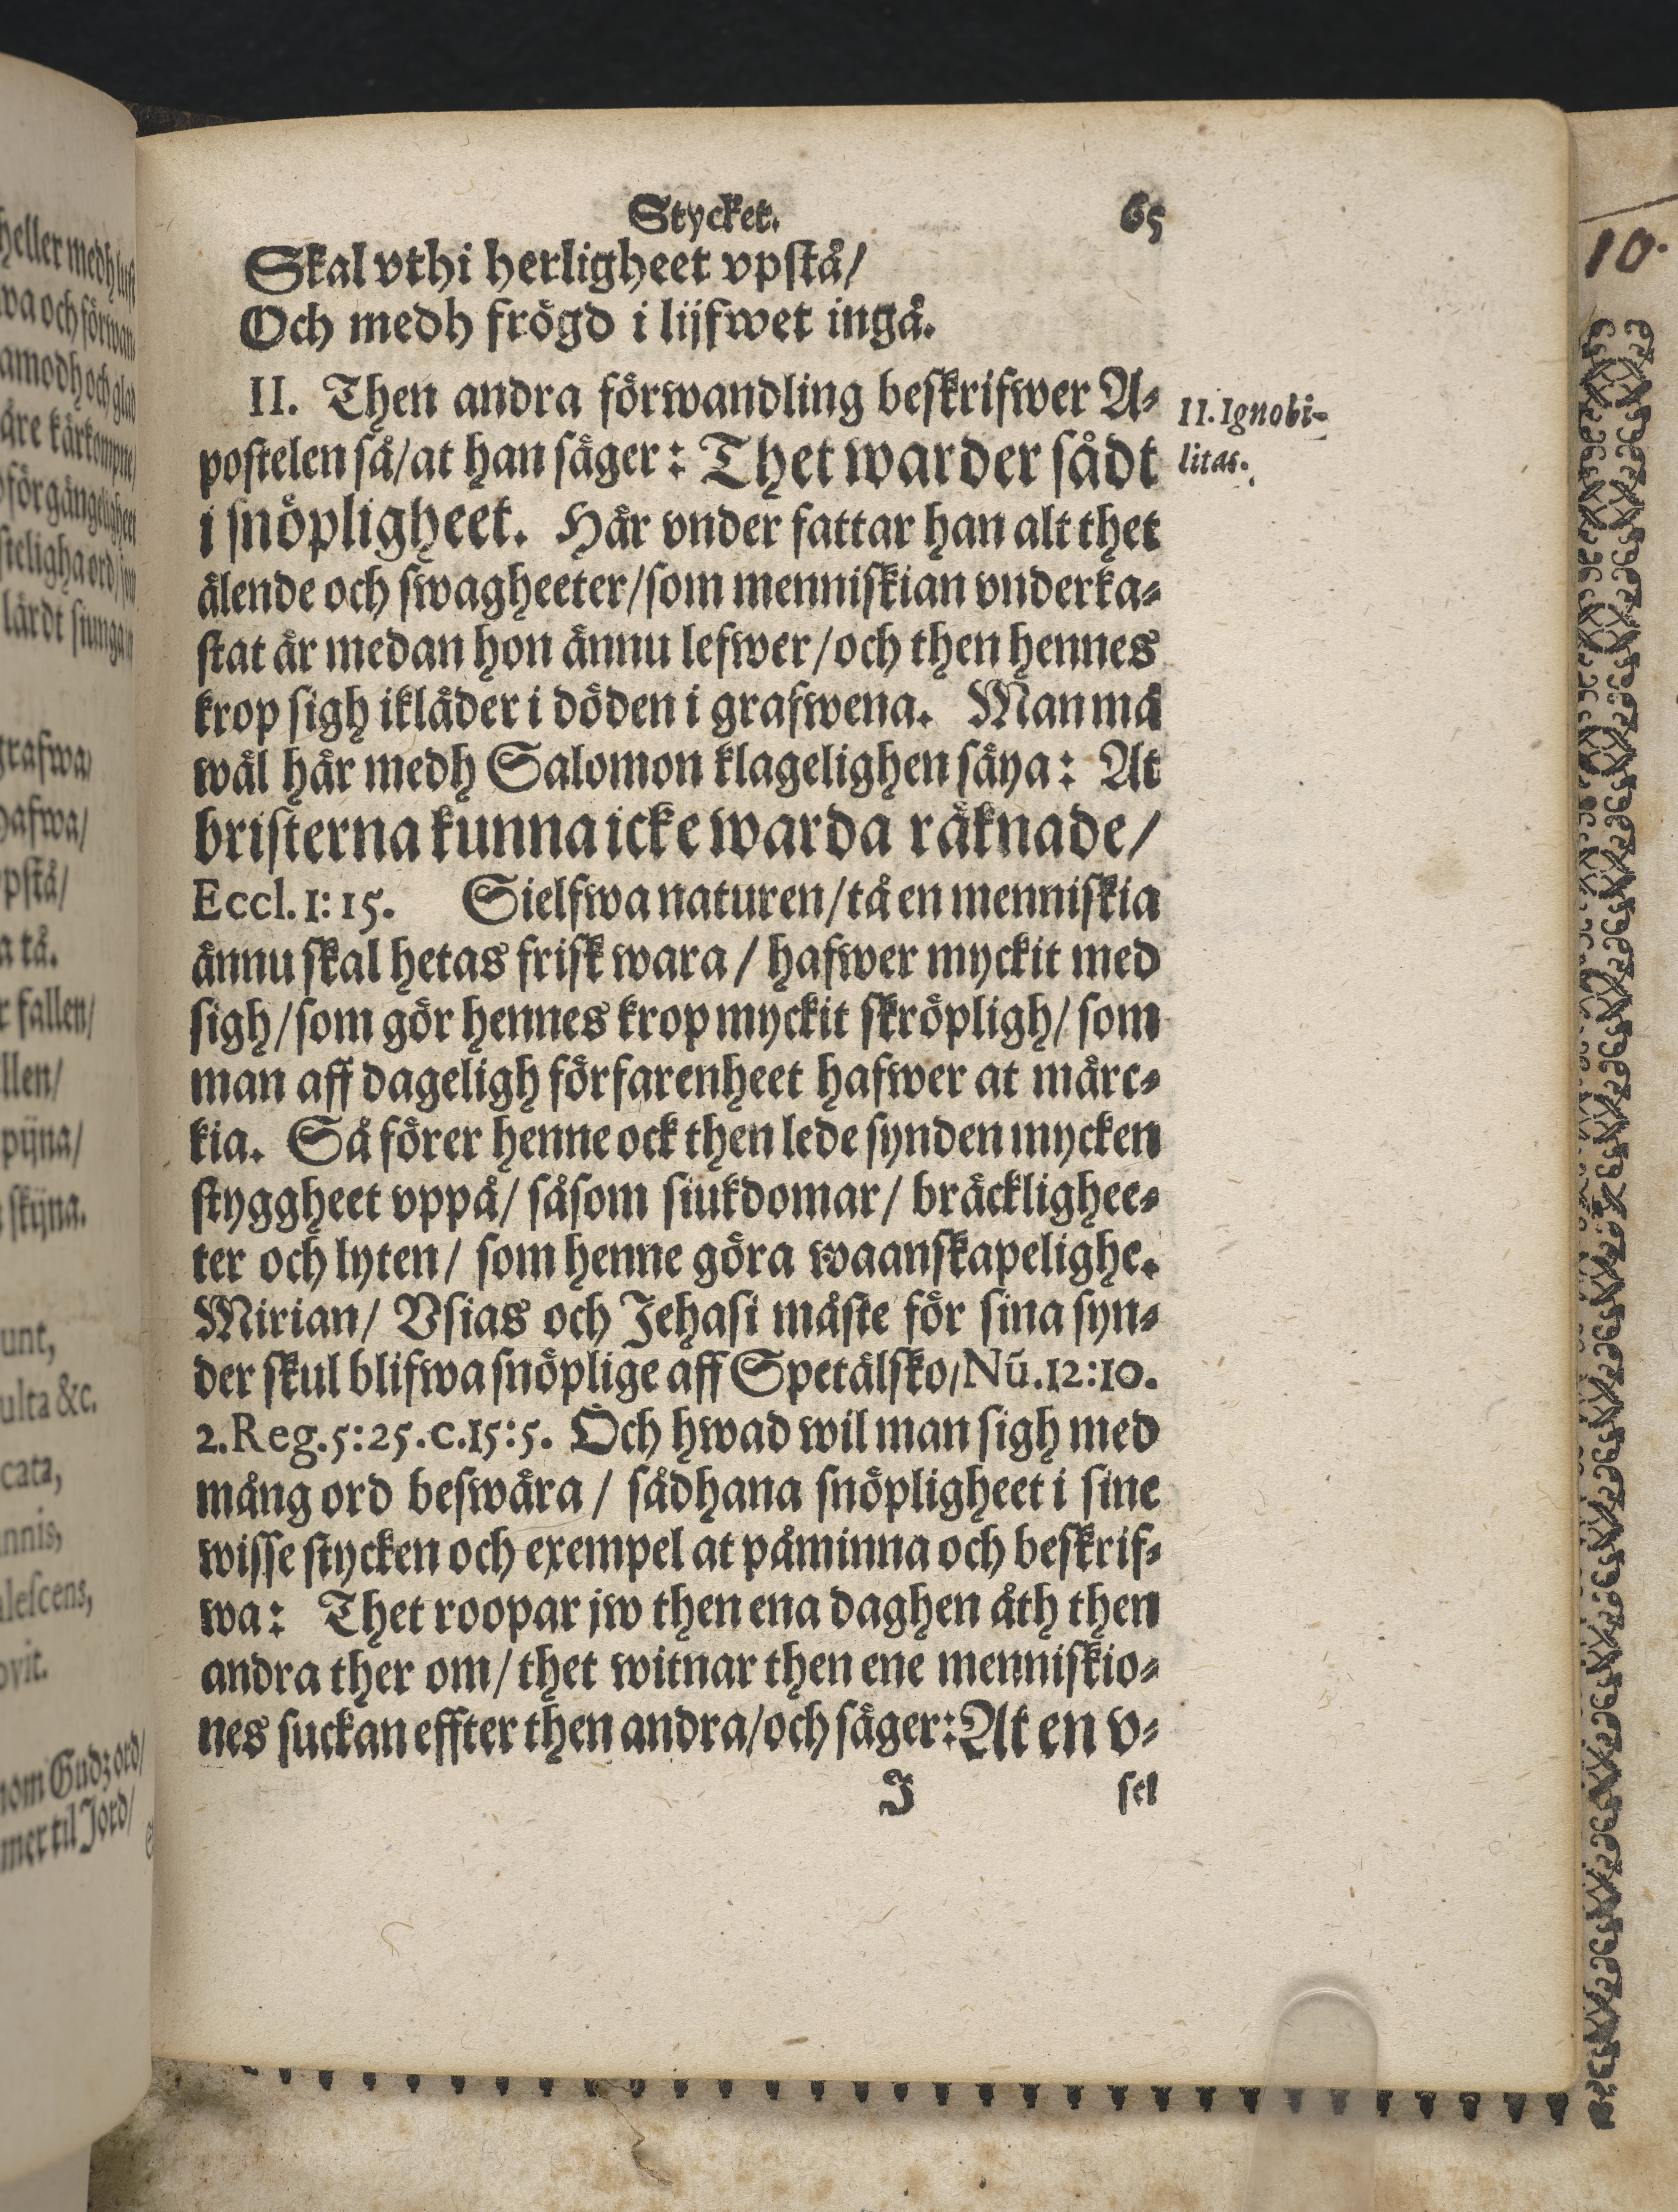 Stycket. 65
Skal vthi herligheet vpstå/
Och medh frögd i lijfwet ingå.
II. Then andra förwandling beskrifwer A-
postelen så/at han säger: Thet warder sådt
i snöpligheet. Här vnder fattar han alt thet
älende och swagheeter/som menniskian vnderka-
stat är medan hon ännu lefwer/och then hennes
krop sigh ikläder i döden i grafwena. Man må
wäl här medh Salomon klagelighen säya: At
bristerna kunna icke warda räknade/
Eccl. I: 15. Sielfwa naturen/tå en menniskia
ännu skal hetas frisk wara / hafwer myckit med
sigh/som gör hennes krop myckit skröpligh/ som
man aff dageligh förfarenheet hafwer at märc-
kia. Så förer henne ock then lede synden mycken
styggheet vppå/ såsom siukdomar/ bräcklighee-
ter och lyten/ som henne göra waanskapelighe.
Mirian/ Vsias och Jehasi måste för sina syn-
der skul blifwa snöplige aff Spetälsko/Nū.12:10.
2.Reg.5:25.c.15:5. Och hwad wil man sigh med
mång ord beswära / sådhana snöpligheet i sine
wisse stycken och exempel at påminna och beskrif-
wa: Thet roopar jw then ena daghen åth then
andra ther om/ thet witnar then ene menniskio-
nes suckan effter then andra/och säger: At en v-
J sel
II. Ignobi-
litas.
10.
heller medh lust
wa och förwan-
amodh och glad
åre kärkompne/
oförgängligheet
steligha ord/
lärdt siunga
grafwa/
hafwa/
pstå/
a tå.
r fallen/
llen/
pijna/
skijna.
unt,
ulta &c.
cata,
nnis,
alescens,
ovit.
nom Gudz ord/
mer til Jord/